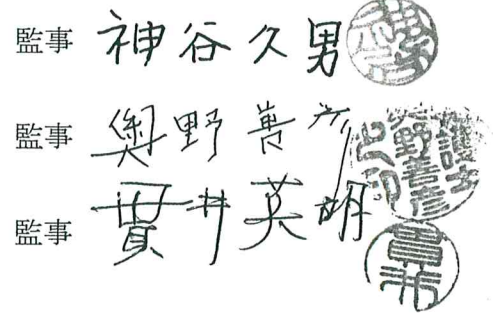 監事 神谷久男
監事 奥野善彦
監事 貫井英明